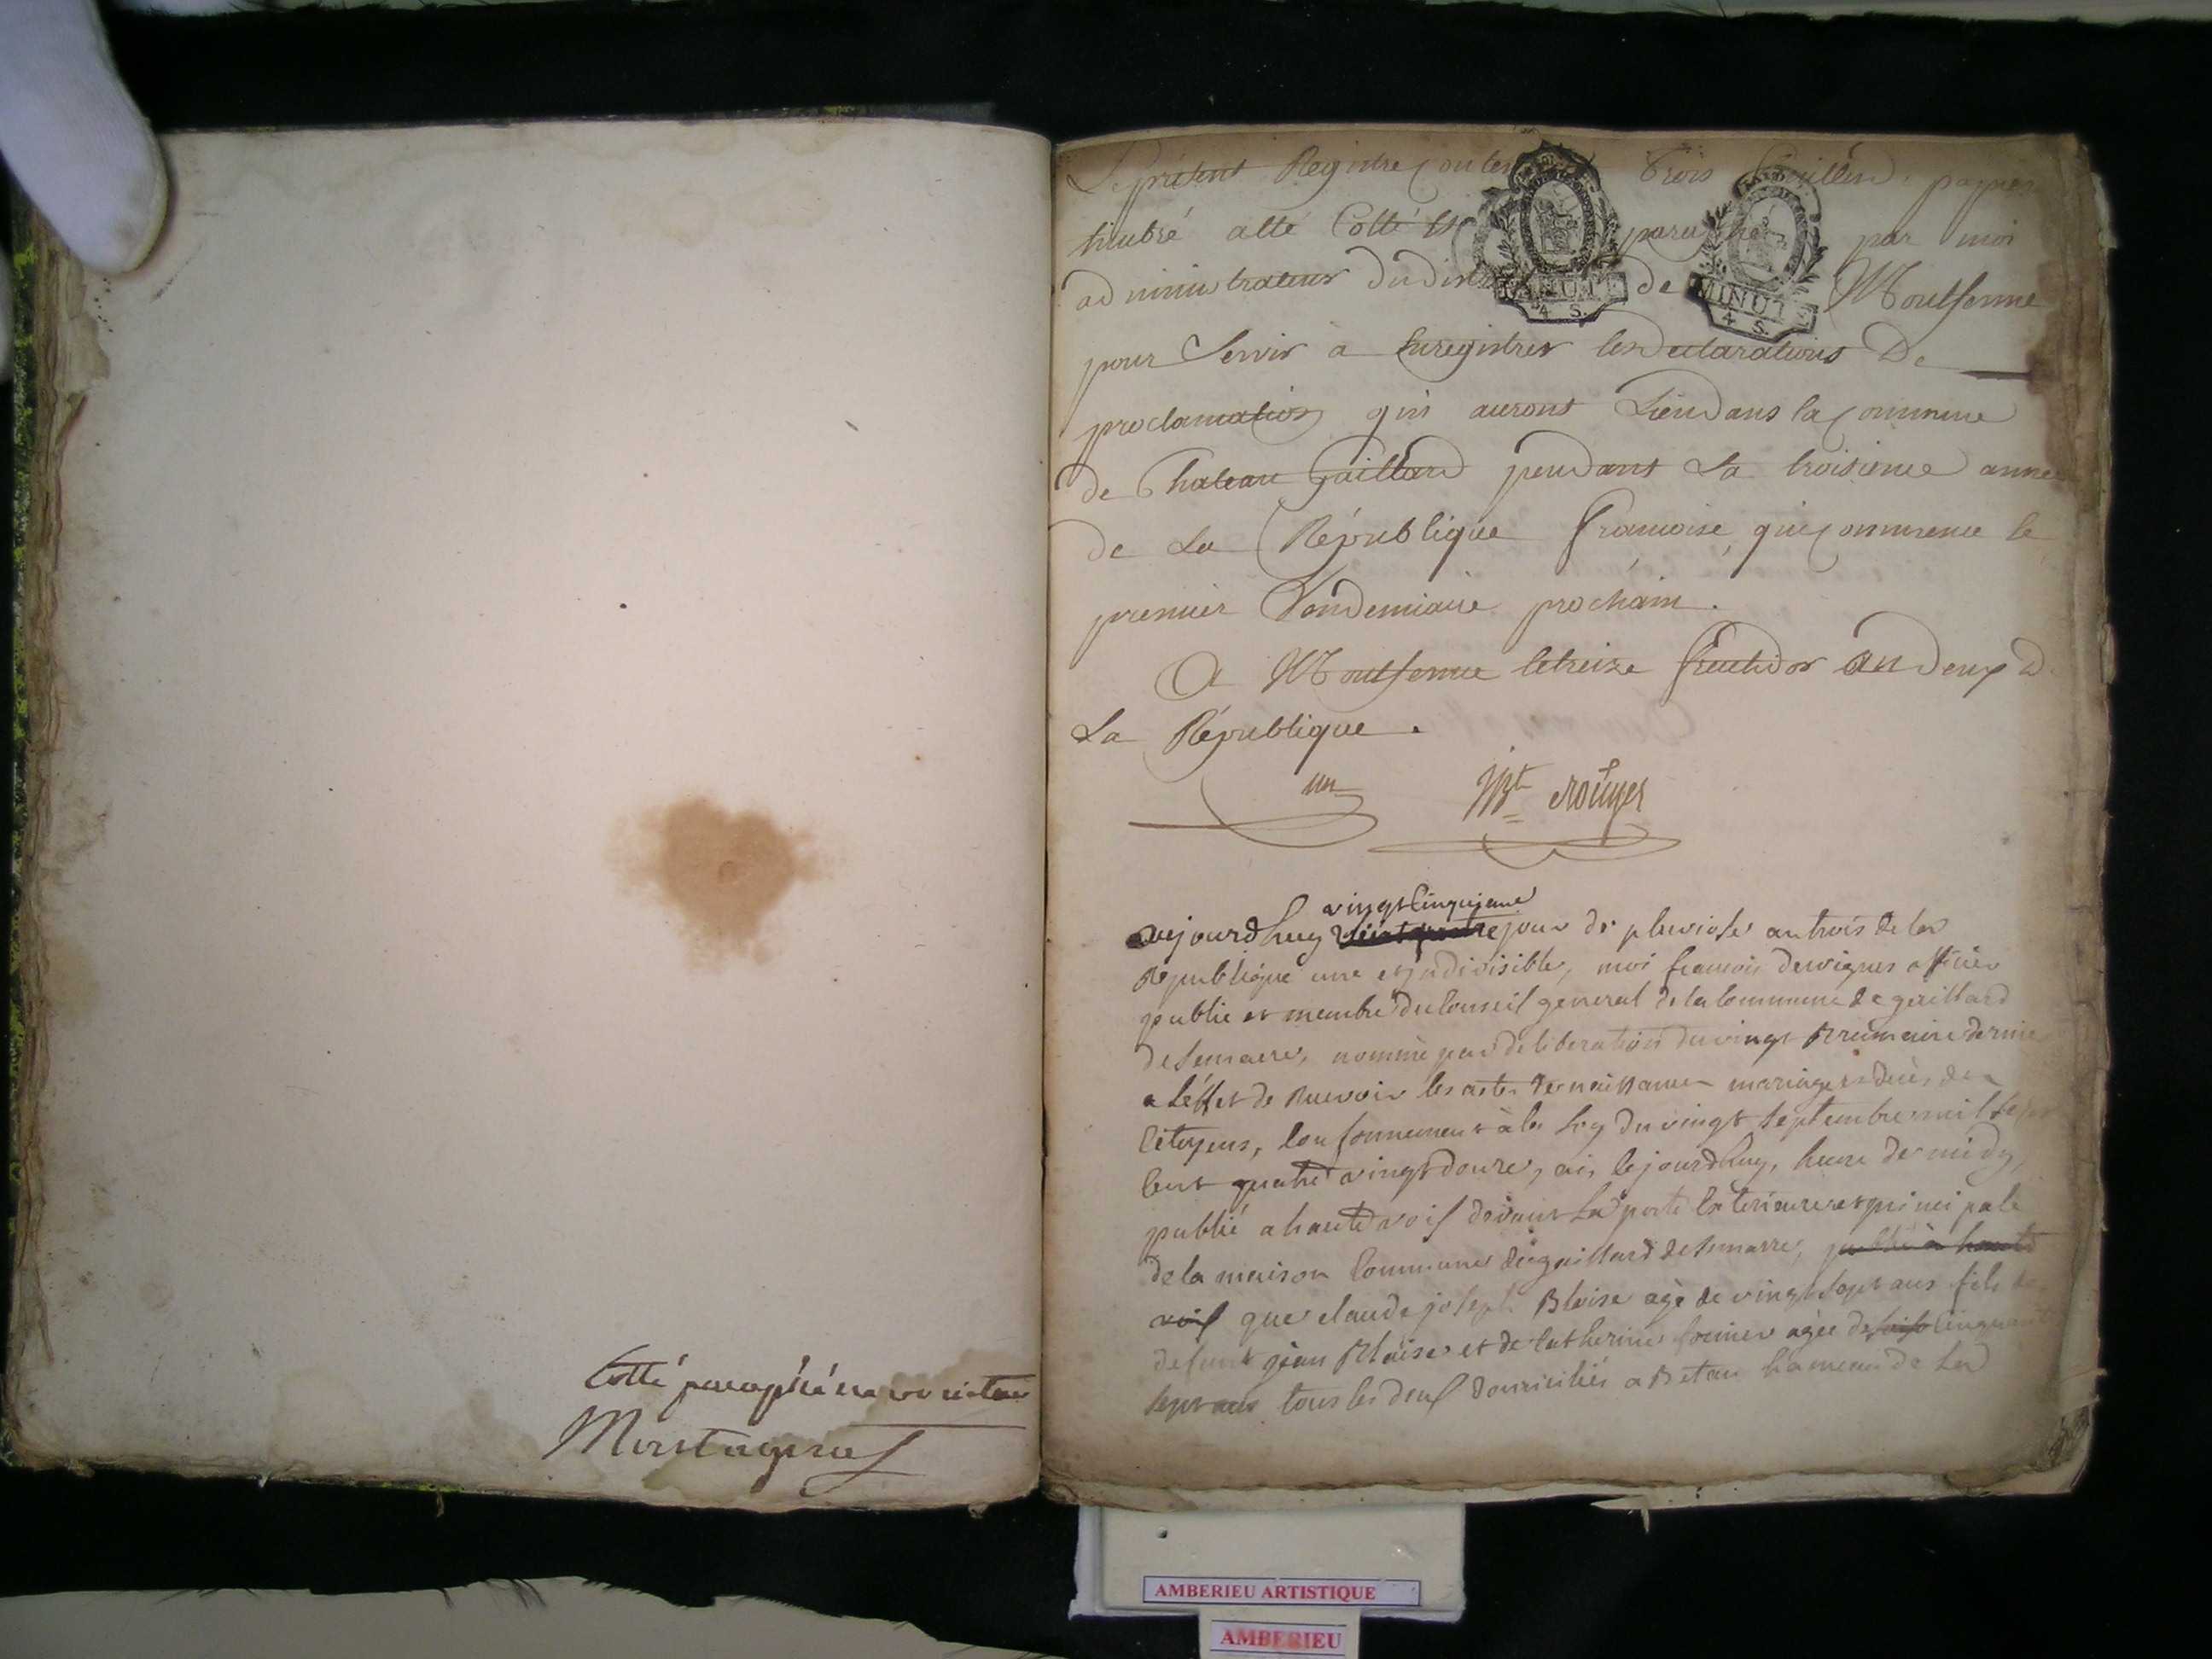 Cotté paraphé ne varietur
Montagnat
Le présent Registre Trois feuillets papier
timbré a été Cotté et par moi
administrateur du district de Montferme
MINUTE
4 S.
MINUTE
4 S.
pour Servir à Enregistrer les Declarations De
proclamation qui auront Lieu dans la Commune
de Chateau Gaillard pendant La troisieme année
de La République françoise qui commence le
premier Vendemiaire prochain.
A Montferme le treize fructidor an deux d
La République.
un
JBt rouyer
vingt cinquieme
aujourdhuy vint quatre jour de pluviose an trois de la
Republique une et jndivisible, moi francois officier
public et membre du Conseil general de la Commune de gaillard
de semarre, nommé par deliberation du vingt Brumaire dernie
a l'éffet de Recevoir les actes de naissances mariages et decès des
Citoyens, Conformement à la Loy du vingt septembre mil sept
Cent quatre vingt douze, ai, cejourdhuy, heure de midy,
publié a haute voix devant La porte Exterieure et principale
de la maison Commune de gaillard de semarre, publié à haute
voix que claude joseph Blaise agé de vingt sept ans fils de
defunt jean Blaise et de Catherine agée de soix Cinquante
sept ans tous les deux domiciliés a Betan hameau de La
AMBERIEU ARTISTIQUE
AMBERIEU